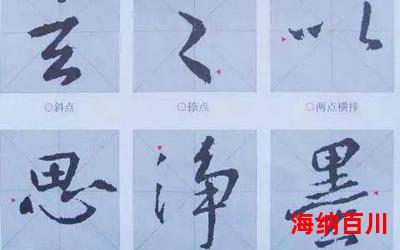 以
○斜点 ○捺点 ○两点横排
思 净 墨
海纳百川